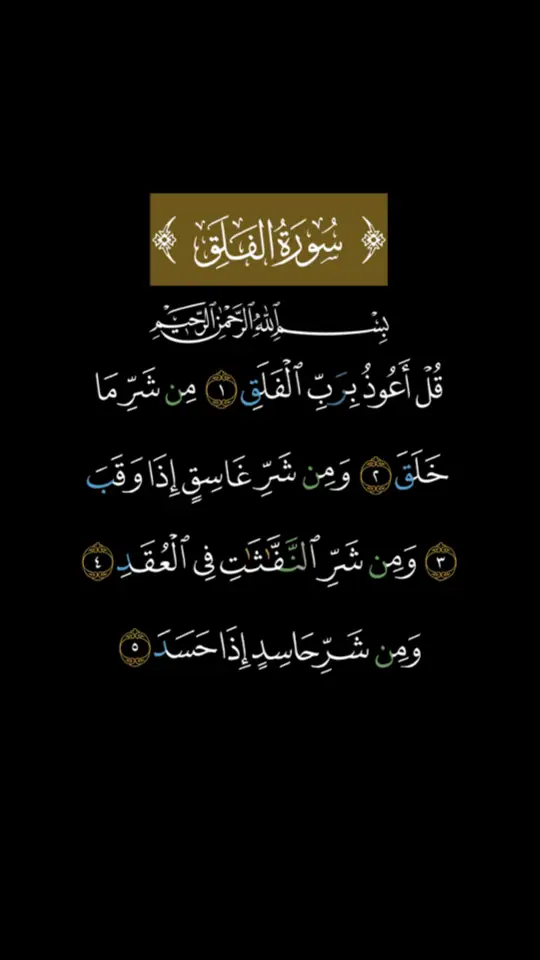 سُورَةُ الفَلَقِ
بِسْمِ ٱللَّهِ ٱلرَّحْمَٰنِ ٱلرَّحِيمِ
قُلْ أَعُوذُ بِرَبِّ ٱلْفَلَقِ ١ مِن شَرِّ مَا
خَلَقَ ٢ وَمِن شَرِّ غَاسِقٍ إِذَا وَقَبَ
٣ وَمِن شَرِّ ٱلنَّفَّٰثَٰتِ فِى ٱلْعُقَدِ ٤
وَمِن شَرِّ حَاسِدٍ إِذَا حَسَدَ ٥